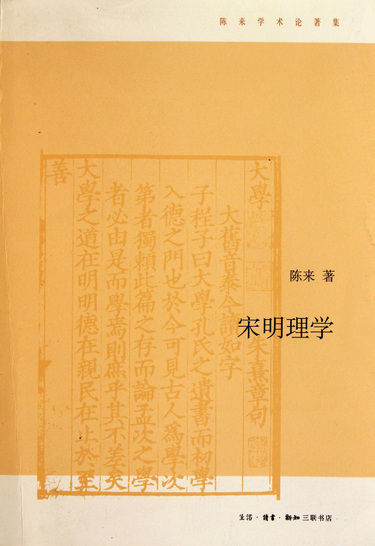 陈来学术论著集
大學 朱熹章句
大舊音泰今讀如字
子程子曰大學孔氏之遺書而初學
入德之門也於今可見古人為學次
第者獨賴此篇之存而論孟次之學
者必由是而學焉則庶乎其不差矣
大學之道在明明德在親民在止於至
善
陈来 著
宋明理学
生活·读书·新知三联书店